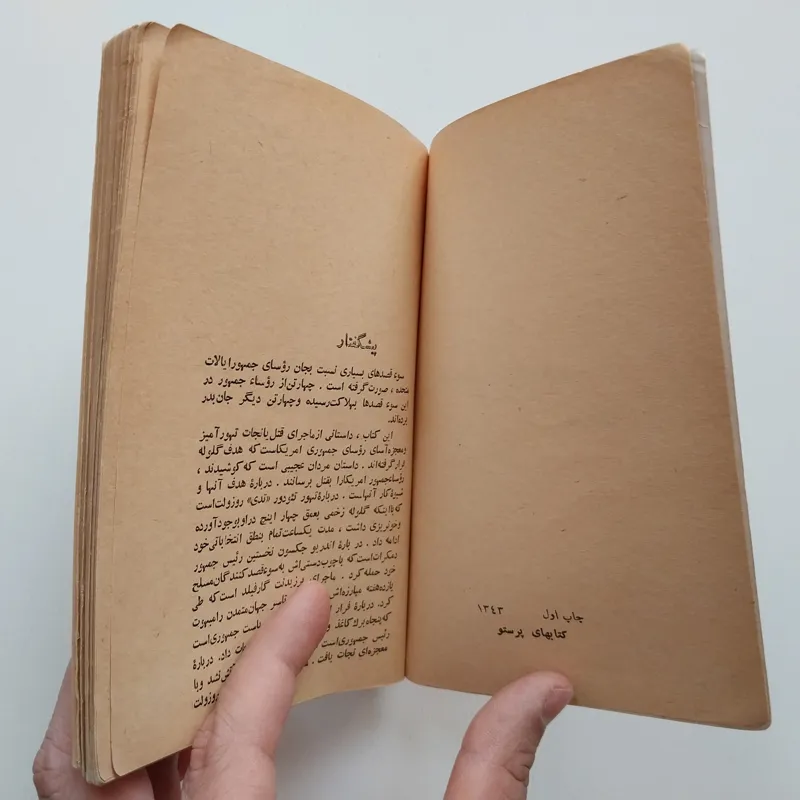 چاپ اول ۱۳۴۳
کتابهای پرستو
پیشگفتار
سوء قصدهای بسیاری نسبت بجان رؤسای جمهور ایالات
متحده ، صورت گرفته است . چهارتن از رؤساء جمهور در
این سوء قصدها بهلاکت رسیده و چهارتن دیگر جان بدر
برده‌اند.
این کتاب ، داستانی از ماجرای قتل یا نجات تهور آمیز
و معجزه آسای رؤسای جمهوری امریکاست که هدف گلوله
قرار گرفته‌اند . داستان مردان عجیبی است که کوشیدند ،
رؤساء جمهور امریکا را بقتل برسانند . دربارهٔ هدف آنها و
شیوهٔ کار آنهاست . دربارهٔ تهور تئودور «تدی» روزولت است
که با اینکه گلوله زخمی بعمق چهار اینچ در او بوجود آورده
و خونریزی داشت ، مدت یکساعت تمام بنطق انتخاباتی خود
ادامه داد . در بارهٔ اندریو جکسون نخستین رئیس جمهور
دمکرات است که با چوب دستی‌اش به سوء قصد کنندگان مسلح
خود حمله کرد . ماجرای پرزیدنت گارفیلد است که طی
یازده هفته مبارزه‌اش جهان متمدن را مبهوت
کرد. دربارهٔ فرار
که پنجاه برگ کاغذ و است جمهوری است
رئیس جمهوری است داد. دربارهٔ
معجزه‌ای نجات یافت . نشد و با
روزولت